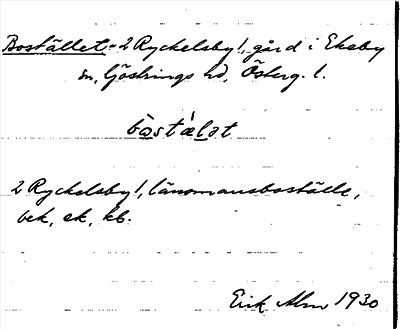 Bostället = 2 Ryckelsby 1, gård i Ekeby
sn, Göstrings hd, Österg. l.
bostälət
2 Ryckelsby 1, länsmansboställe,
bek, ek, kb.
Erik Alm 1930